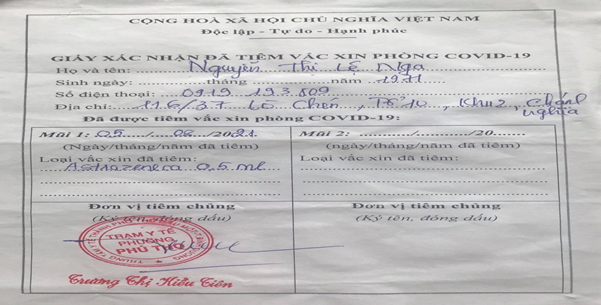 CỘNG HOÀ XÃ HỘI CHỦ NGHĨA VIỆT NAM
Độc lập - Tự do - Hạnh phúc
GIẤY XÁC NHẬN ĐÃ TIÊM VẮC XIN PHÒNG COVID-19
Họ và tên: Nguyễn Thị Lệ Nga
Sinh ngày: tháng năm 1971
Số điện thoại: 0919 193.809
Địa chỉ: 116/37 Lê Chân, Tổ 10, Khu 2, Chánh Nghĩa
Đã được tiêm vắc xin phòng COVID-19:
Mũi 1: 05 / 08 / 2021
(Ngày/tháng/năm đã tiêm)
Loại vắc xin đã tiêm:
Astrazeneca 0,5 ml
Đơn vị tiêm chủng
(Ký tên, đóng dấu)
TRẠM Y TẾ
PHƯỜNG
PHÚ THỌ
Trương Thị Kiều Tiên
Mũi 2: / /20
(ngày/tháng/năm đã tiêm)
Loại vắc xin đã tiêm:
Đơn vị tiêm chủng
(Ký tên, đóng dấu)